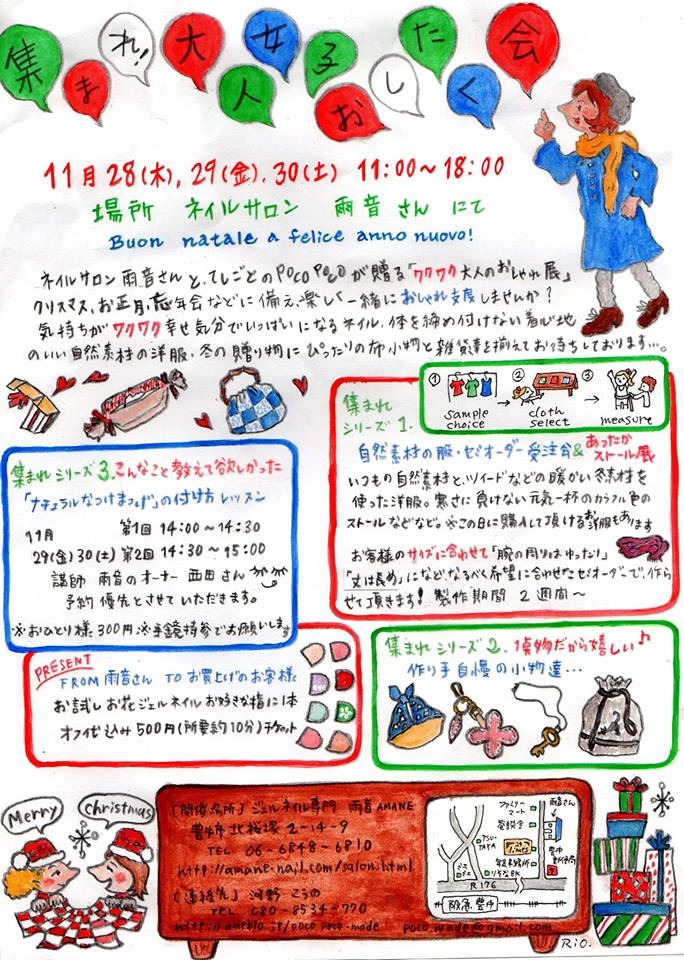 集まれ!大人女子おしたく会
11月28(木),29(金),30(土) 11:00〜18:00
場所 ネイルサロン 雨音さん にて
Buon natale a felice anno nuovo!
ネイルサロン雨音さんと、てしごとのPOCO POCOが贈る「ワクワク大人のおしゃれ展」
クリスマス、お正月、忘年会などに備え、楽しく一緒におしゃれ支度しませんか?
気持ちがワクワク幸せ気分でいっぱいになるネイル、体を締め付けない着心地
のいい自然素材の洋服、冬の贈り物にぴったりの布小物と雑貨達を揃えてお待ちしております…。
集まれ
シリーズ1.
① ② ③
sample choice → cloth select → measure
自然素材の服・セミオーダー受注会&あったか
ストール展
いつもの自然素材と、ツイードなどの暖かい冬素材を
使った洋服。寒さに負けない元気一杯のカラフル色の
ストールなどなど。※この日に購入して頂けるお洋服もあります
お客様のサイズに合わせて「腕の周りはゆったり」
「丈は長め」になど、なるべく希望に合わせたセミオーダーで、作ら
せて頂きます! 製作期間 2週間〜
集まれシリーズ3.こんなこと教えて欲しかった
「ナチュラルなつけまつげ」の付け方レッスン
11月 第1回 14:00〜14:30
29(金)30(土) 第2回 14:30〜15:00
講師 雨音のオーナー 西田さん
予約優先とさせていただきます。
※おひとり様300円※手鏡持参でお願いします
PRESENT
FROM雨音さん TOお買上げのお客様
お試しお花ジェルネイルお好きな指に1本
オフ代込み500円(所要約10分)チケット
集まれシリーズ2. 1点物だから嬉しい♪
作り手自慢の小物達…
Merry
christmas
〔開催場所〕ジェルネイル専門 雨音AMANE
豊中市北桜塚2-14-9
TEL 06-6848-6810
http://amane-nail.com/salon.html
〔連絡先〕河野 こうの
TEL 080-8534-770
http://ameblo.jp/poco poco-made poco.made@gmail.com
ファミリーマート
雨音さん
TSUTAYA
豊中郵便局
りそなBK
R176
阪急豊中
RiO.